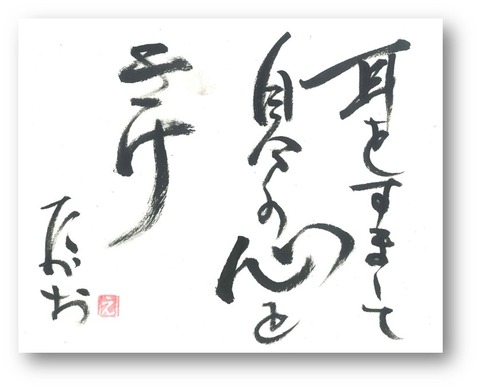 耳をすまして
自分の心を
きけ
たかお
え